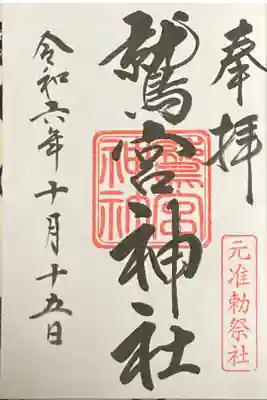 奉拝
元准勅祭社
鷲宮神社
鷲宮神社
令和六年十月十五日